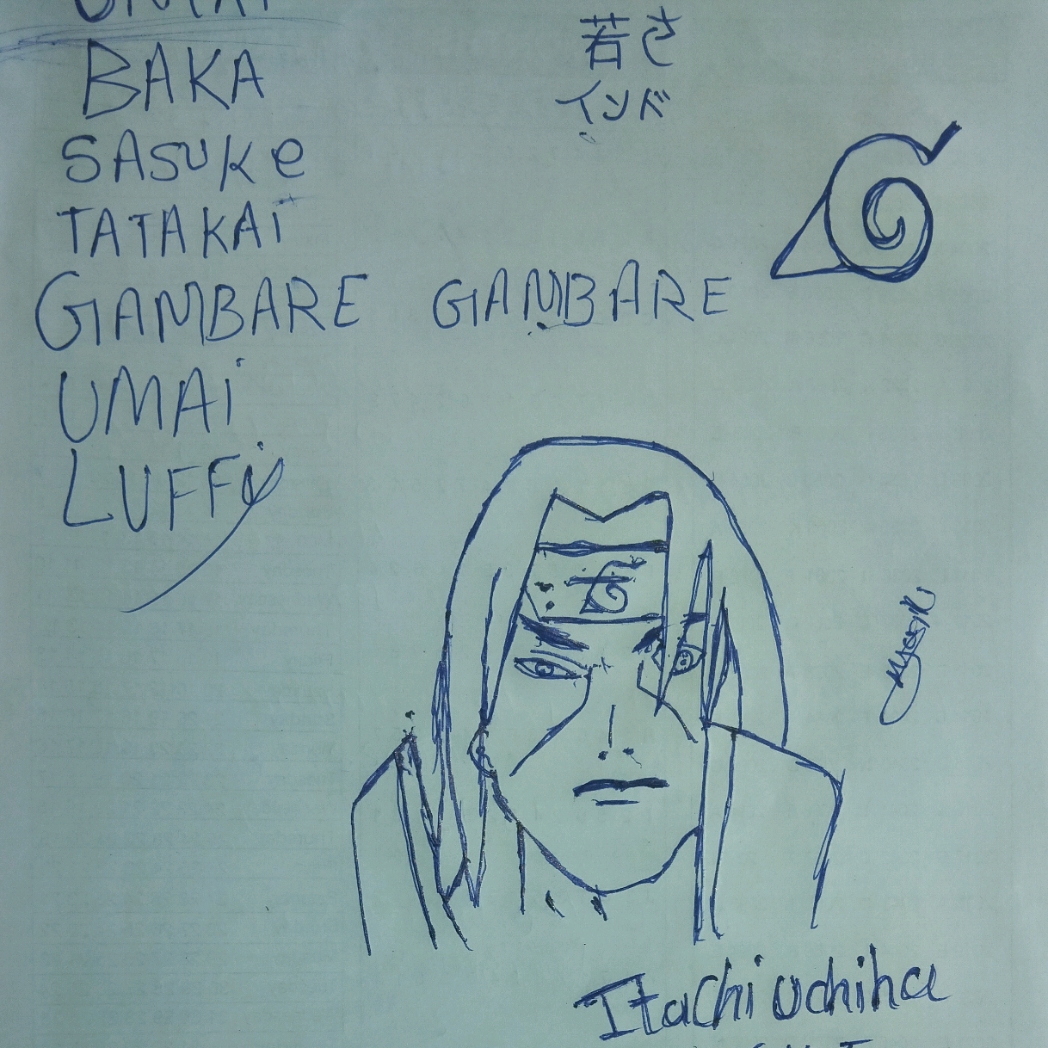 UMAI
BAKA
SASUKe
TATAKAi
GAMBARE GAMBARE
UMAi
LUFFy
若さ
インド
Itachi uchiha